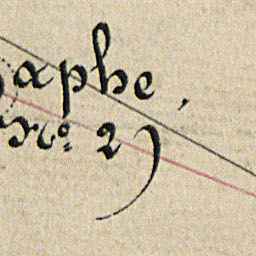 aphe,
No. 2)